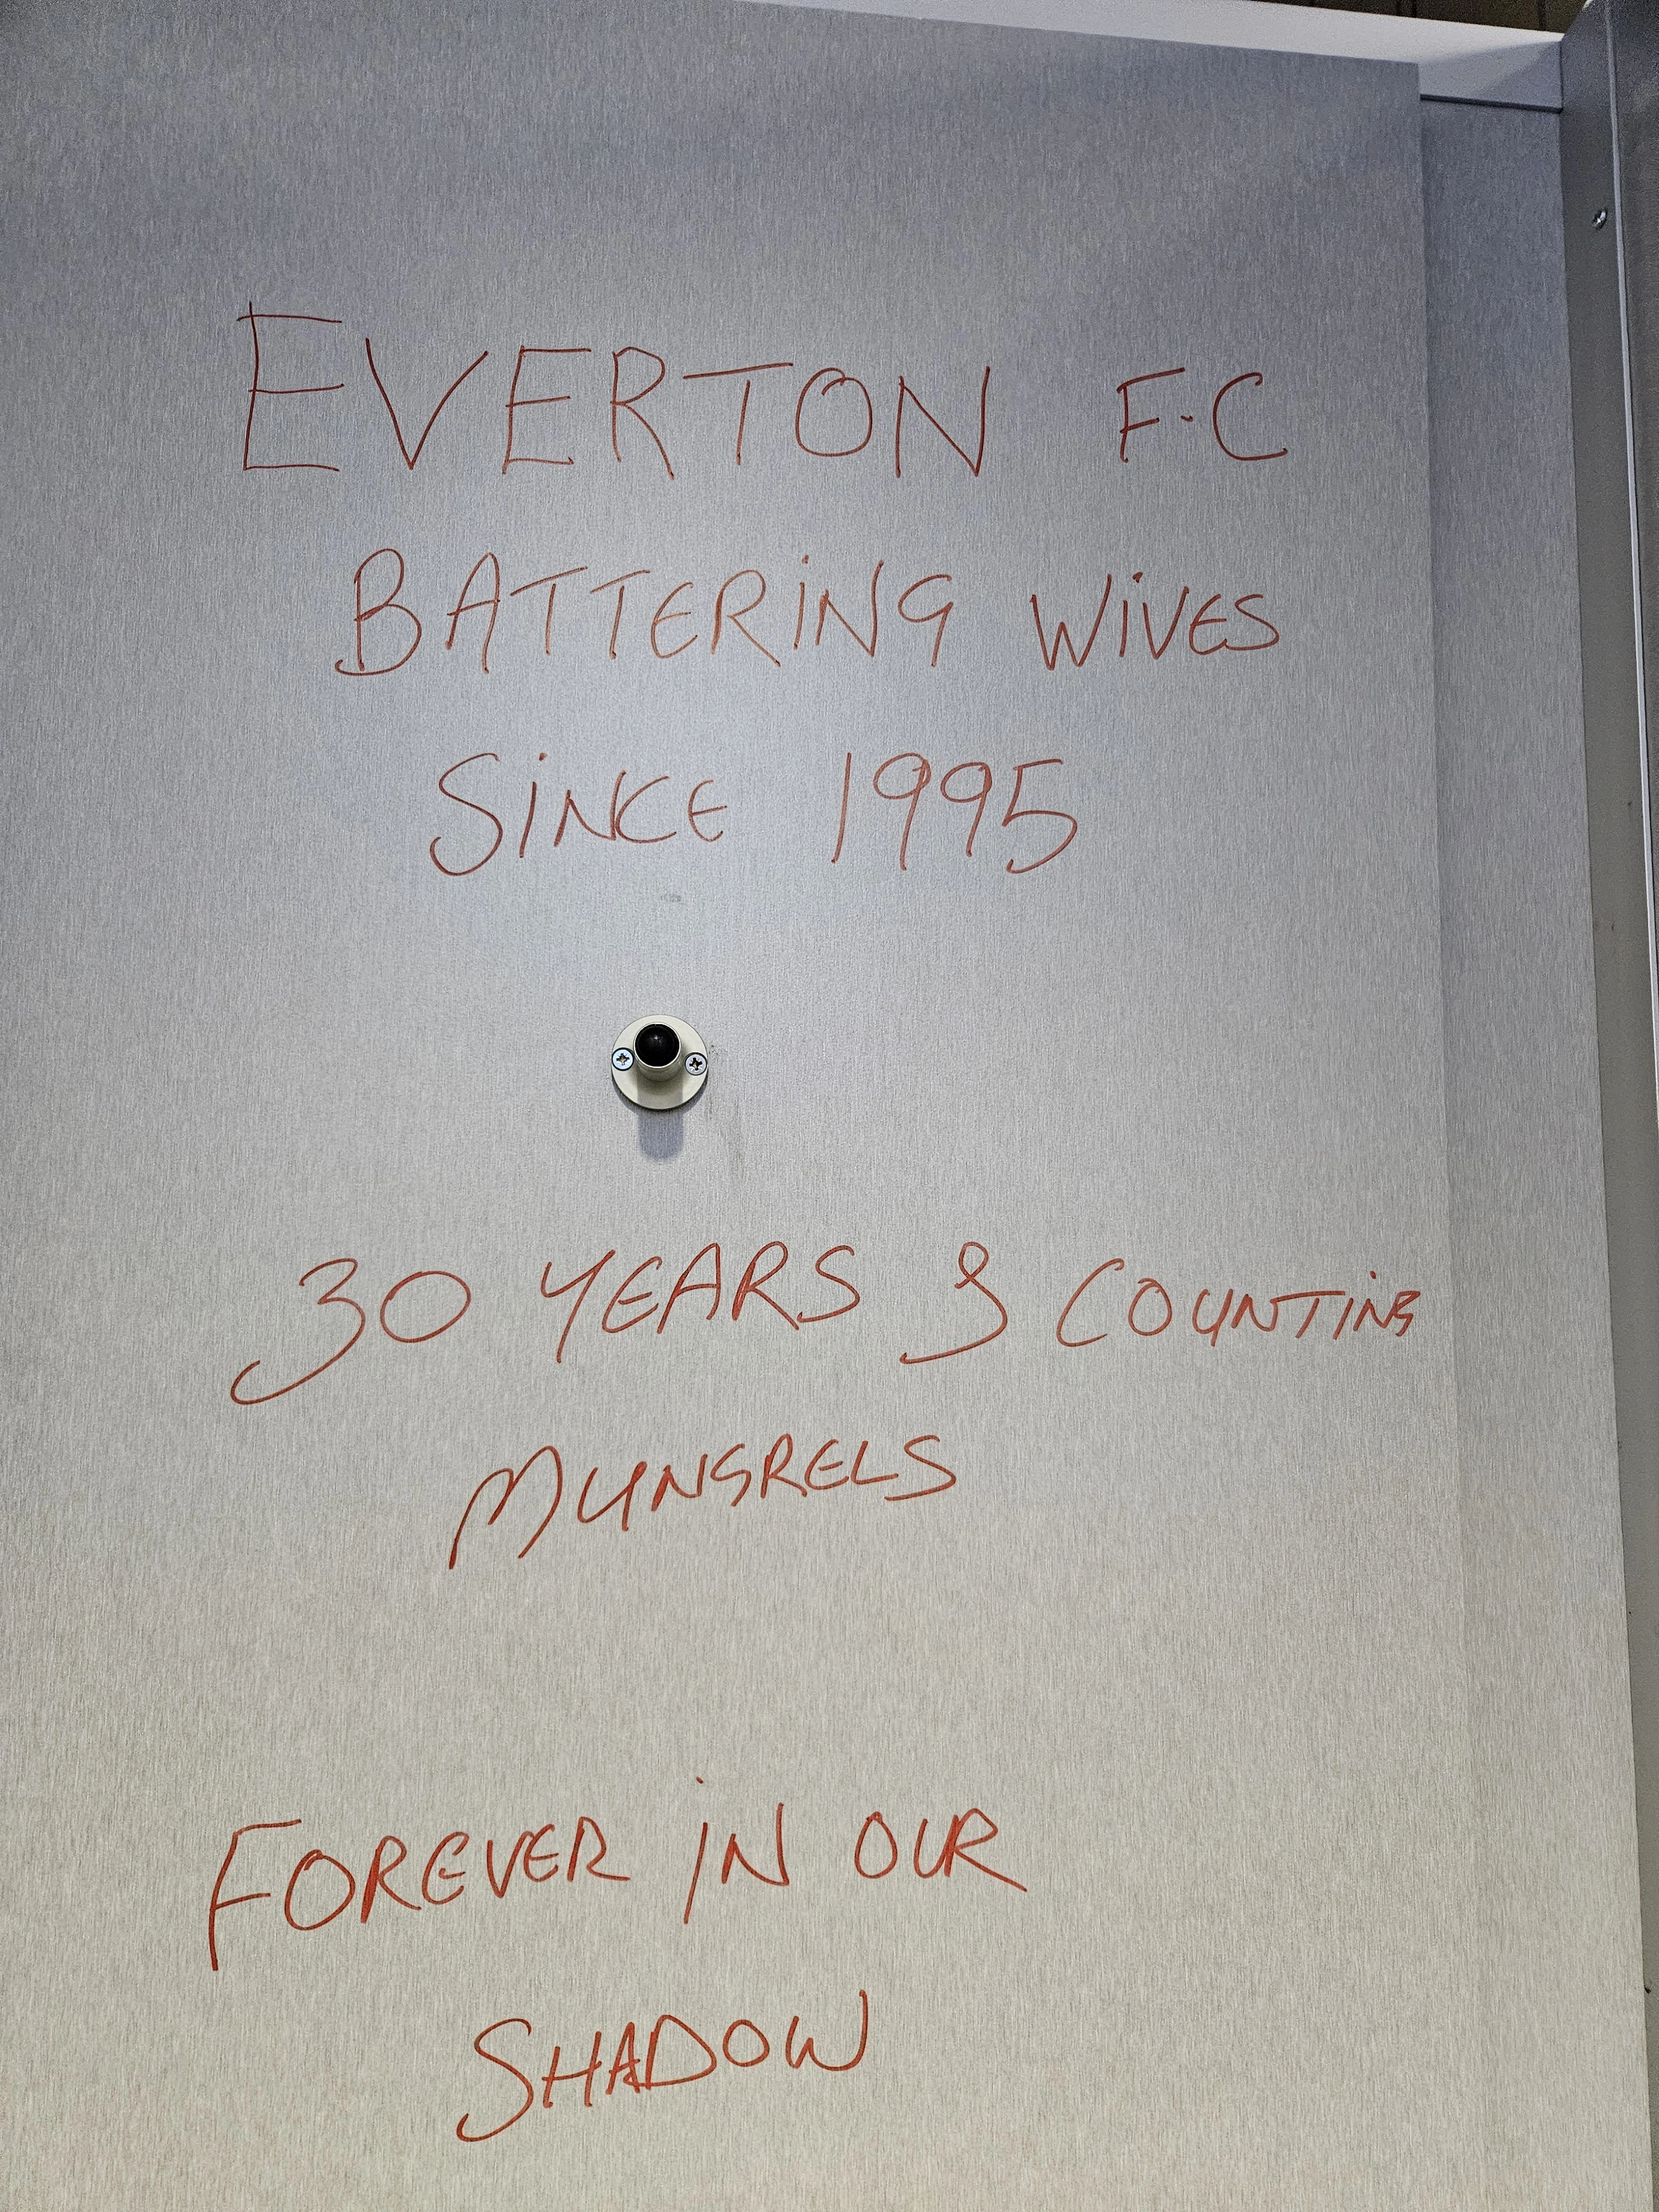 EVERTON F.C
BATTERING WIVES
SINCE 1995
30 YEARS & COUNTING
MUNGRELS
FOREVER IN OUR
SHADOW